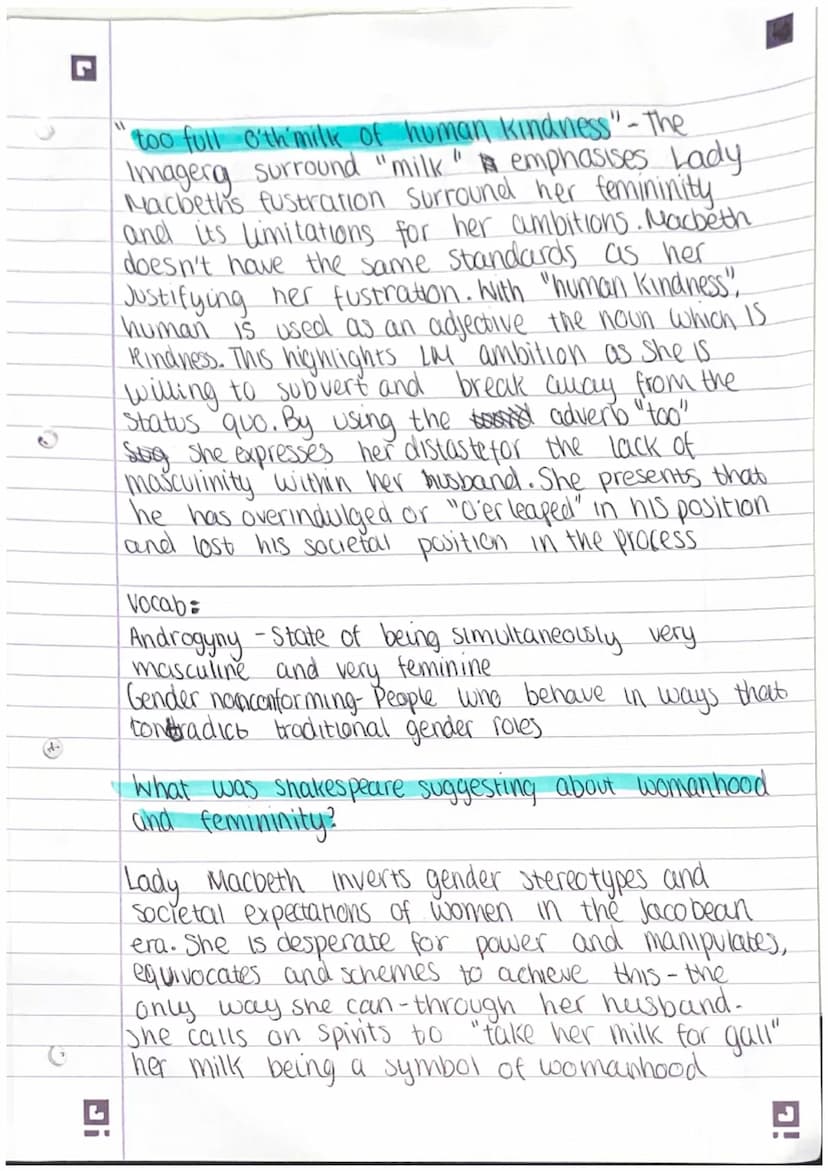 "too full o'th'milk of human kindness" - The
Imagery surround "milk" emphasises Lady
Macbeth's fustration surround her femininity
and its limitations for her ambitions. Macbeth
doesn't have the same standards as her
justifying her fustration. With "human kindness",
human is used as an adjective the noun which is
kindness. This highlights LM ambition as she is
willing to subvert and break away from the
status quo. By using the adverb "too"
she expresses her distaste for the lack of
masculinity within her husband. She presents that
he has overindulged or "o'erleaped" in his position
and lost his societal position in the process
Vocab:
Androgyny - State of being simultaneously very
masculine and very feminine
Gender nonconforming- People who behave in ways that
contradict traditional gender roles
What was Shakespeare suggesting about womanhood
and femininity?
Lady Macbeth inverts gender stereotypes and
societal expectations of women in the Jacobean
era. She is desperate for power and manipulates,
equivocates and schemes to achieve this - the
only way she can - through her husband.
She calls on spirits to "take her milk for gall"
her milk being a symbol of womanhood